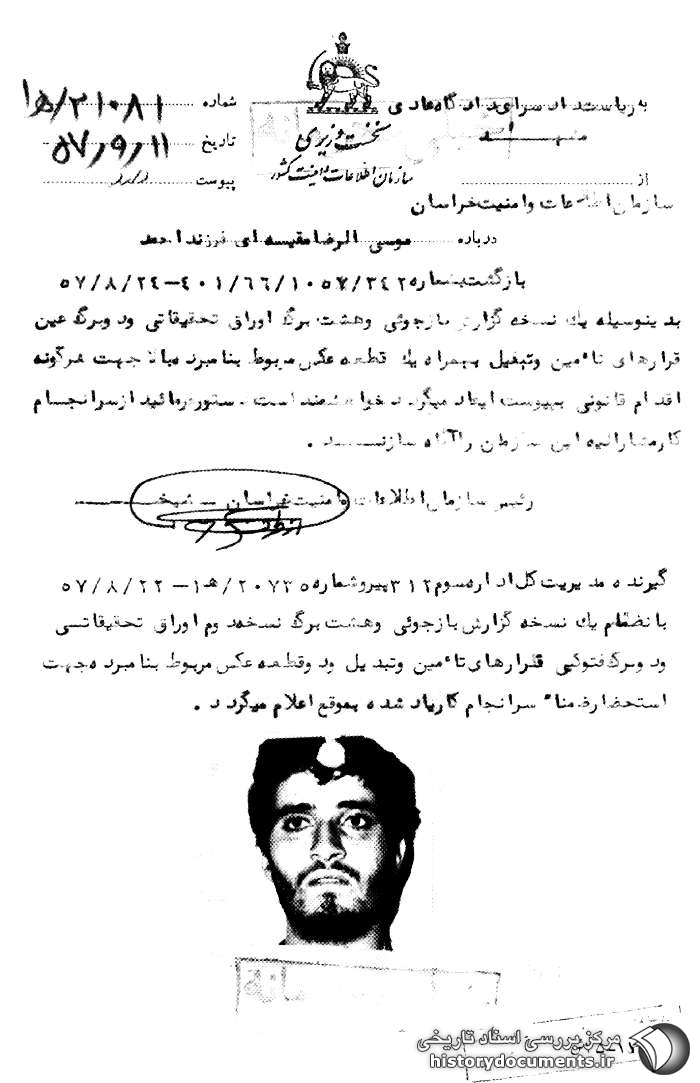 به ریاست دادسرای دادگاه عادی
مشهد
از
سازمان اطلاعات و امنیت خراسان
نخست وزیری
سازمان اطلاعات و امنیت کشور
شماره ۲۱۰۸۱/۱ه
تاریخ ۵۷/۹/۱۱
پیوست دارد
درباره موسی الرضا مقیسه ای فرزند احمد
بازگشت بشماره ۴۰۱/۶۶/۱۰۵۷/۳۴۲-۵۷/۸/۲۴
بدینوسیله یك نسخه گزارش بازجوئی و هشت برگ اوراق تحقیقاتی و دو برگ عین
قرارهای تأمین و تبدیل بهمراه یك قطعه عکس مربوط بنامبرده بالا جهت هرگونه
اقدام قانونی بپیوست ایفاد میگردد خواهشمند است . دستور فرمائید از سرانجام
کار مشارالیه این سازمان را آگاه سازند .
رئیس سازمان اطلاعات و امنیت خراسان - شیخان
گیرنده مدیریت کل اداره سوم ۳۱۲ پیرو شماره ۲۰۷۳۵/ه۱-۵۷/۸/۲۲
با نضمام یك نسخه گزارش بازجوئی و هشت برگ نسخه دوم اوراق تحقیقاتی
و دو برگ فتوکپی قرارهای تأمین و تبدیل و دو قطعه عکس مربوط بنامبرده جهت
استحضار ضمنا" سرانجام کار یاد شده بموقع اعلام میگردد .
مرکز بررسی اسناد تاریخی
historydocuments.ir